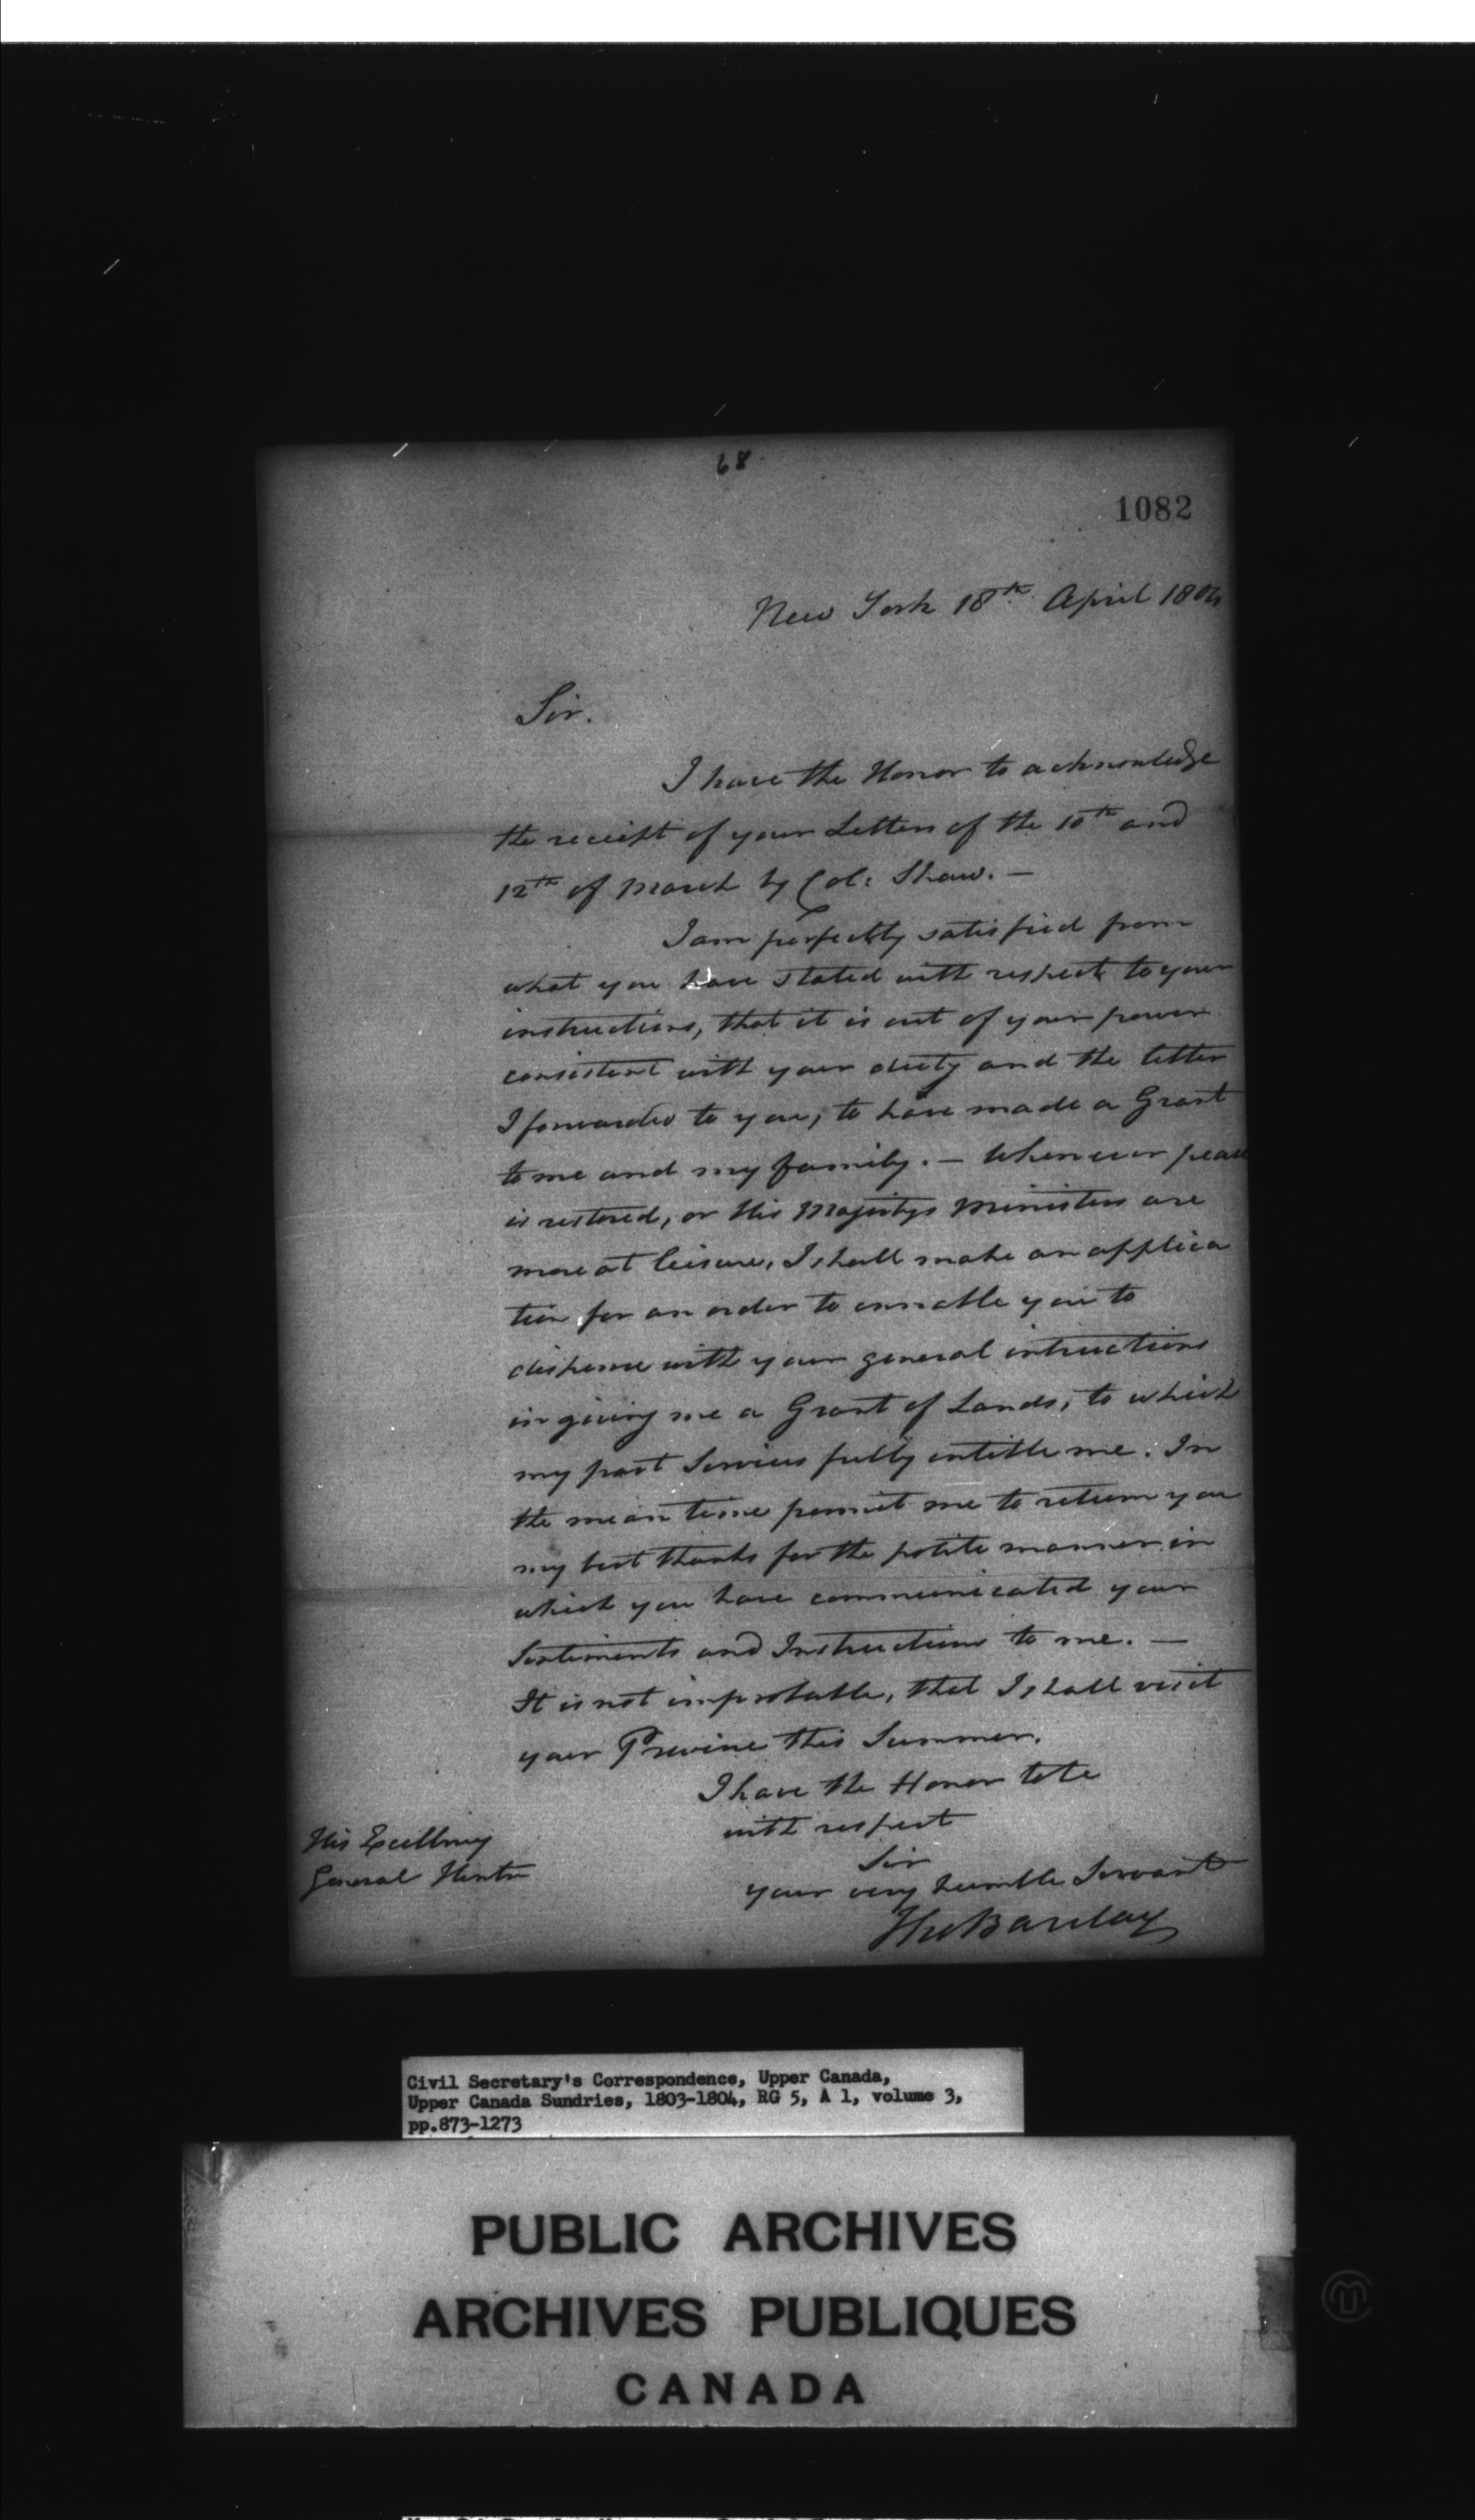 68
1082
New York 18th April 1804
Sir.
I have the Honor to acknowledge
the receipt of your Letters of the 10th and
12th of March by Col: Shaw. —
I am perfectly satisfied from
what you have stated with respect to your
instructions, that it is out of your power
consistent with your duty and the letter
I forwarded to you, to have made a Grant
to me and my family. — Whenever peace
is restored, or His Majestys Ministers are
more at leisure, I shall make an applica
tion for an order to ennable you to
dispense with your general intructions
in giving me a Grant of Lands, to which
my past Services fully intitle me. In
the mean time permit me to return you
my best thanks for the polite manner in
which you have communicated your
Sentiments and Instructions to me. —
It is not improbable, that I shall visit
your Province this Summer.
I have the Honor to be
with respect
Sir
your very humble Servant
Tho Barclay
His Excellency
General Hunter
Civil Secretary's Correspondence, Upper Canada,
Upper Canada Sundries, 1803-1804, RG 5, A 1, volume 3,
pp.873-1273
PUBLIC ARCHIVES
ARCHIVES PUBLIQUES
CANADA